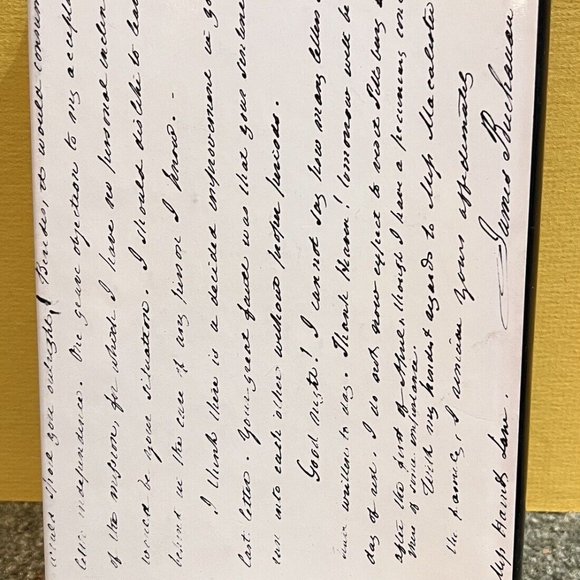 would spoil you outright. Besides, it would
tion independence. One grave objection to my accept
of the mission, for which I have no personal inclin
would be your situation. I should dislike to lea
behind in the care of any person I know. -
I think there is a decided improvement in yo
last letter. Your great fault was that your sentenc
ran into each other without proper periods.
Good night! I cannot say how many letters
written to day. Thank Heaven! tomorrow will be
day of rest. I do not now expect to visit
after the first of April, though I have a pecuniary con
of some importance.
With my kindest regards to Miss Macalester
the family, I remain yours affectionately
James Buchanan
Miss Harriet Lane.